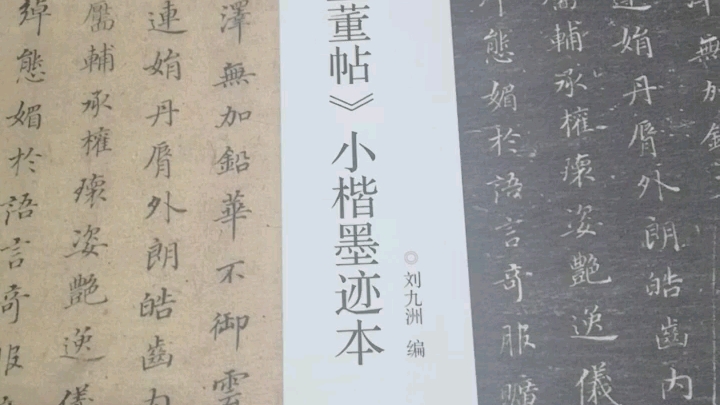 董帖》小楷墨迹本
刘九洲 编
澤無加鉛華不御雲
連娟丹脣外朗皓齒内
靨輔承權瓌姿艷逸
綽態媚於語言奇服
無加鉛
娟丹脣外朗皓齒内
輔承權瓌姿艷逸儀
綽態媚於語言奇服曠